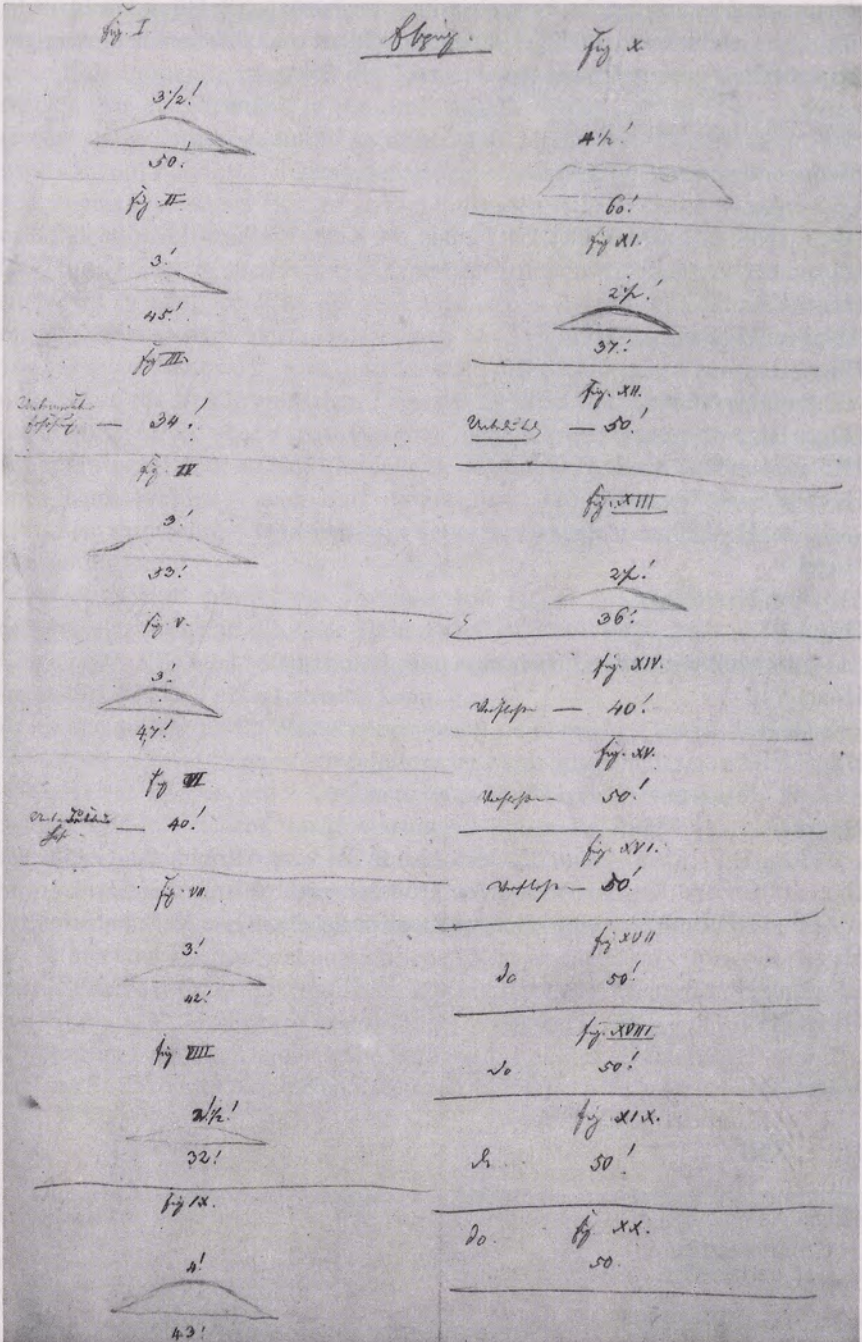 fig. I
3 1/2!
50!
fig. II
3!
45!
fig III.
— 34!
fig IV
3!
53!
fig. V.
3!
47!
fig VI
— 40!
fig. VII
3!
42!
fig VIII
2 1/2!
32!
fig IX.
4!
43!
fig X.
4 1/2!
60!
fig XI.
2 1/2!
37!
fig. XII.
— 50!
fig. XIII
2 1/2!
36!
fig XIV.
— 40!
fig. XV.
50!
fig. XVI.
— 50!
fig XVII
do 50!
fig. XVIII
do 50!
fig XIX.
do 50!
do. fig XX.
50.